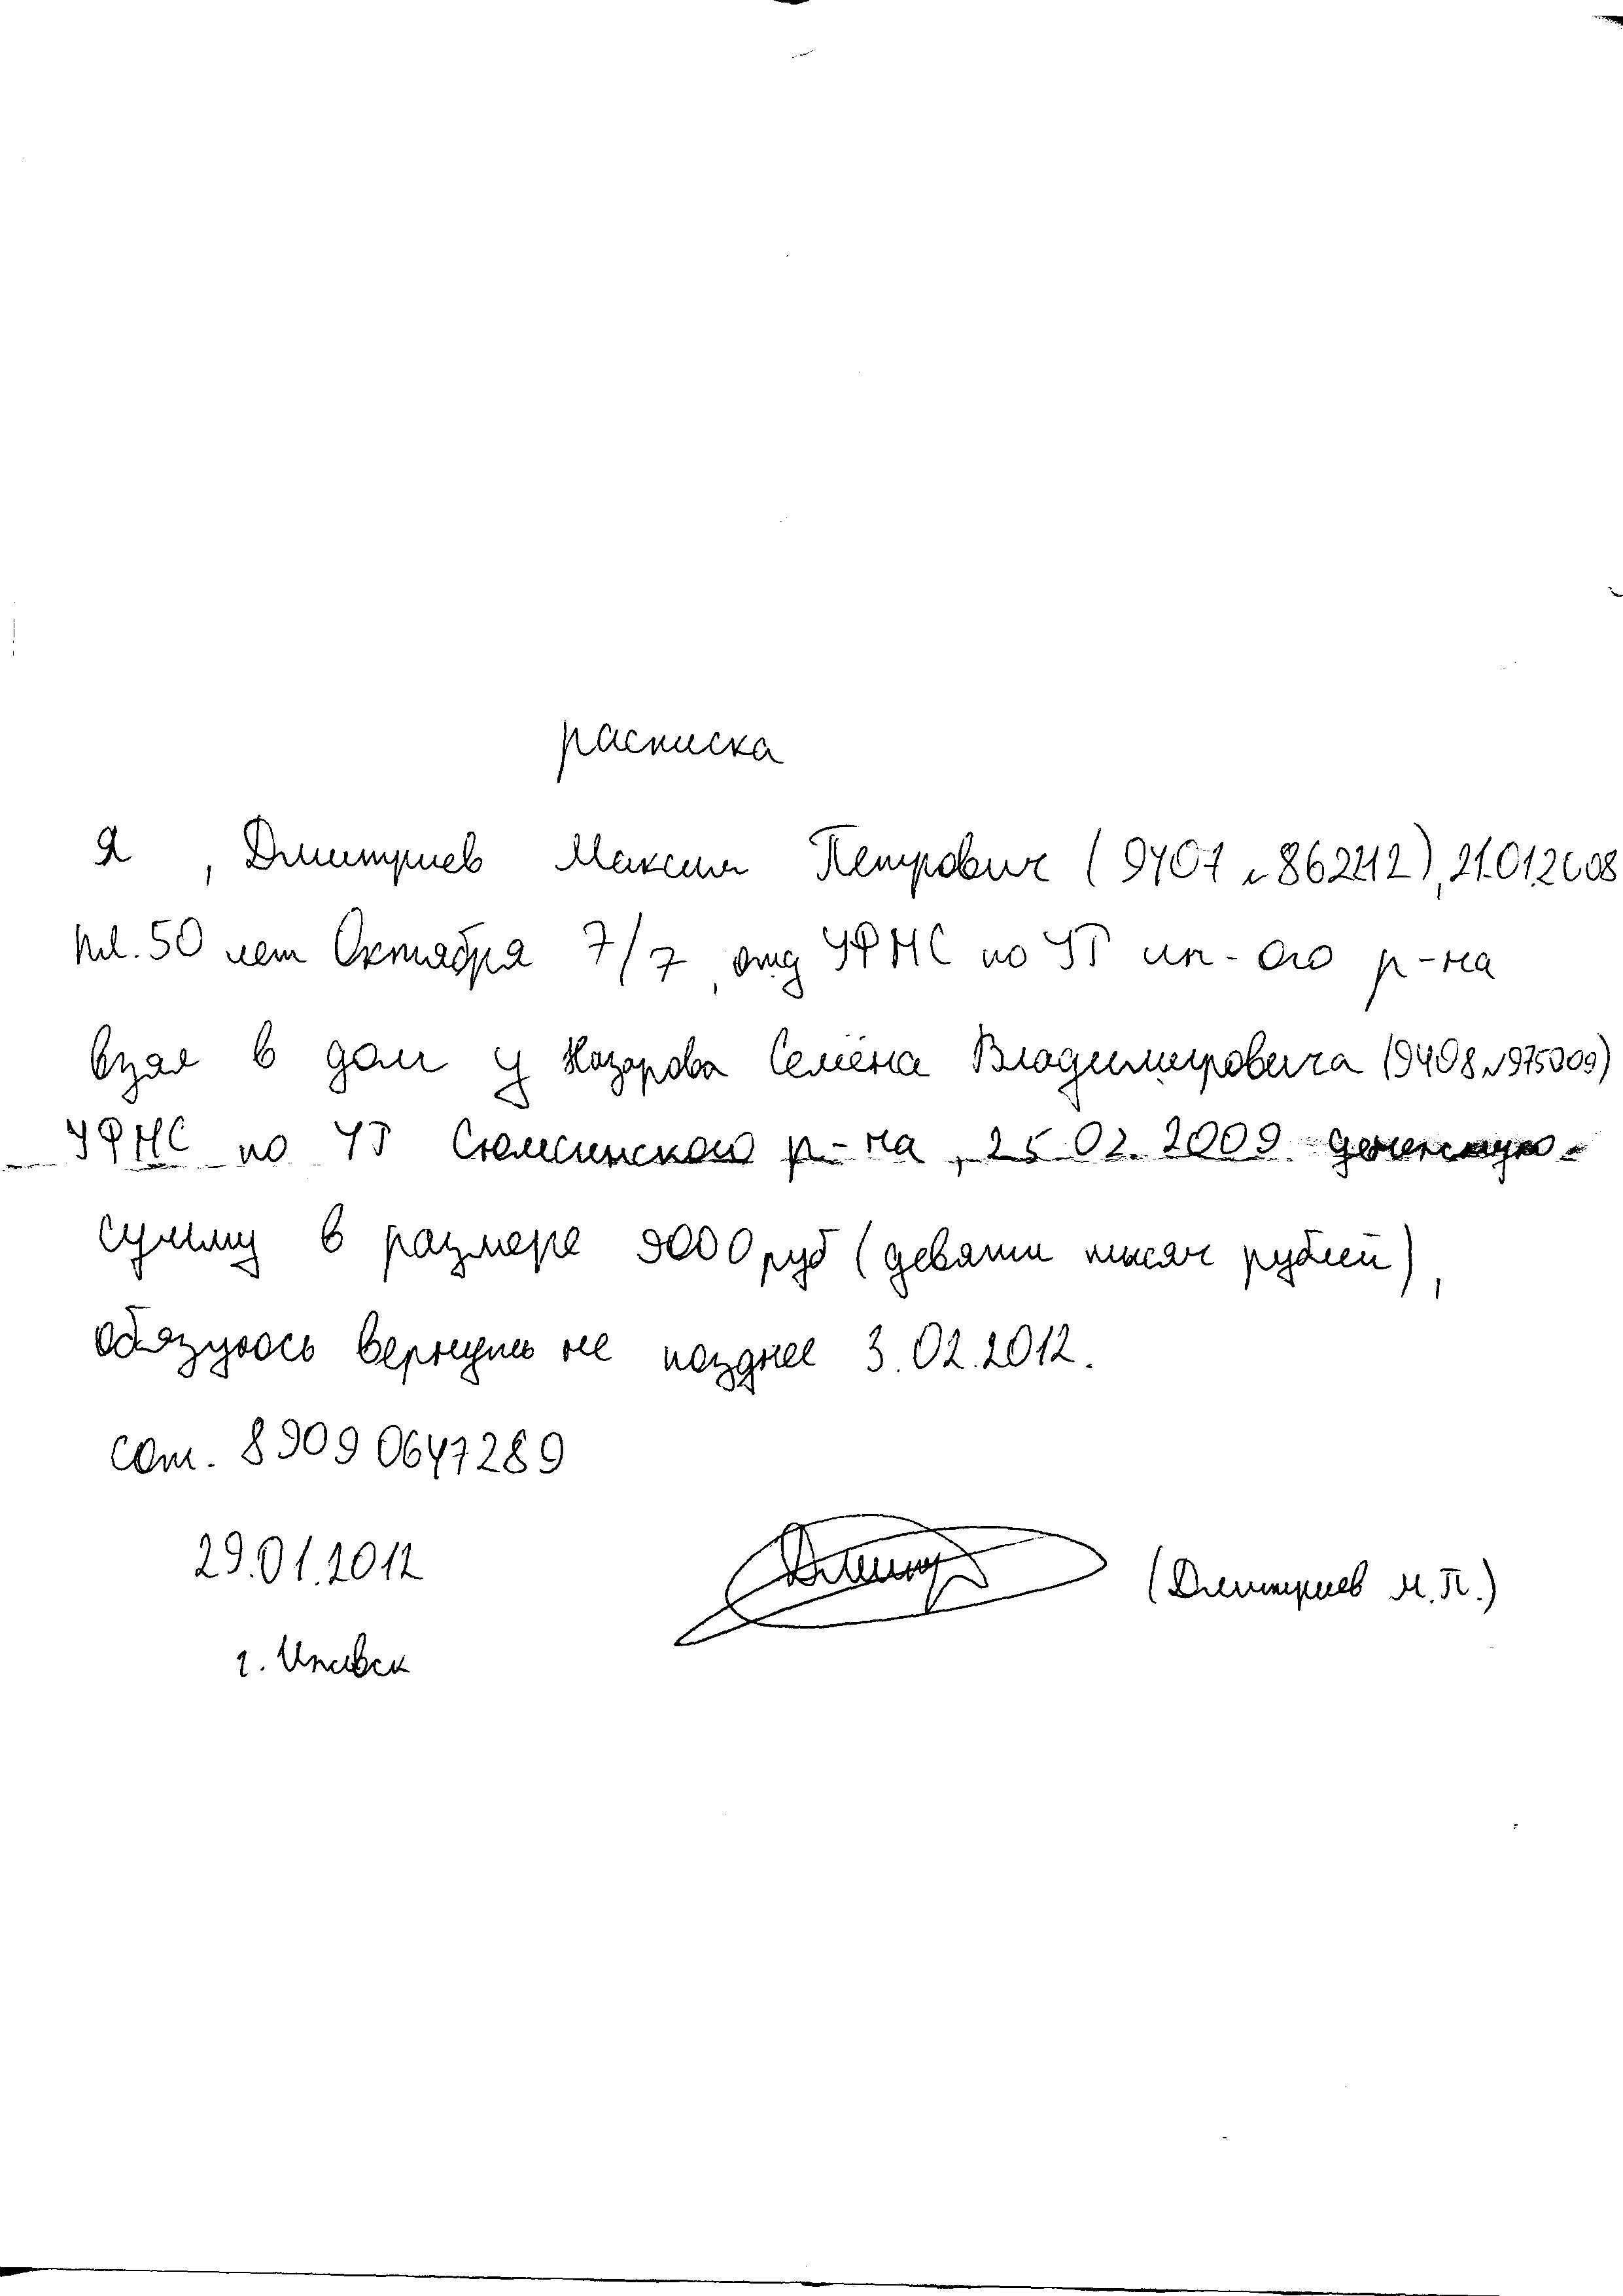 расписка
Я, Дмитриев Максим Петрович (9407 № 862212), 21.01.2008
пл. 50 лет Октября 7/7, отд УФМС по УР ин-ого р-на
взял в долг у Назарова Семёна Владимировича (9408 № 975009)
УФМС по УР Сюмсинского р-на, 25.02.2009 денежную
сумму в размере 9000 руб (девяти тысяч рублей),
обязуюсь вернуть не позднее 3.02.2012.
сот. 89090647289
29.01.2012
Дмитр (Дмитриев М.П.)
г. Ижевск